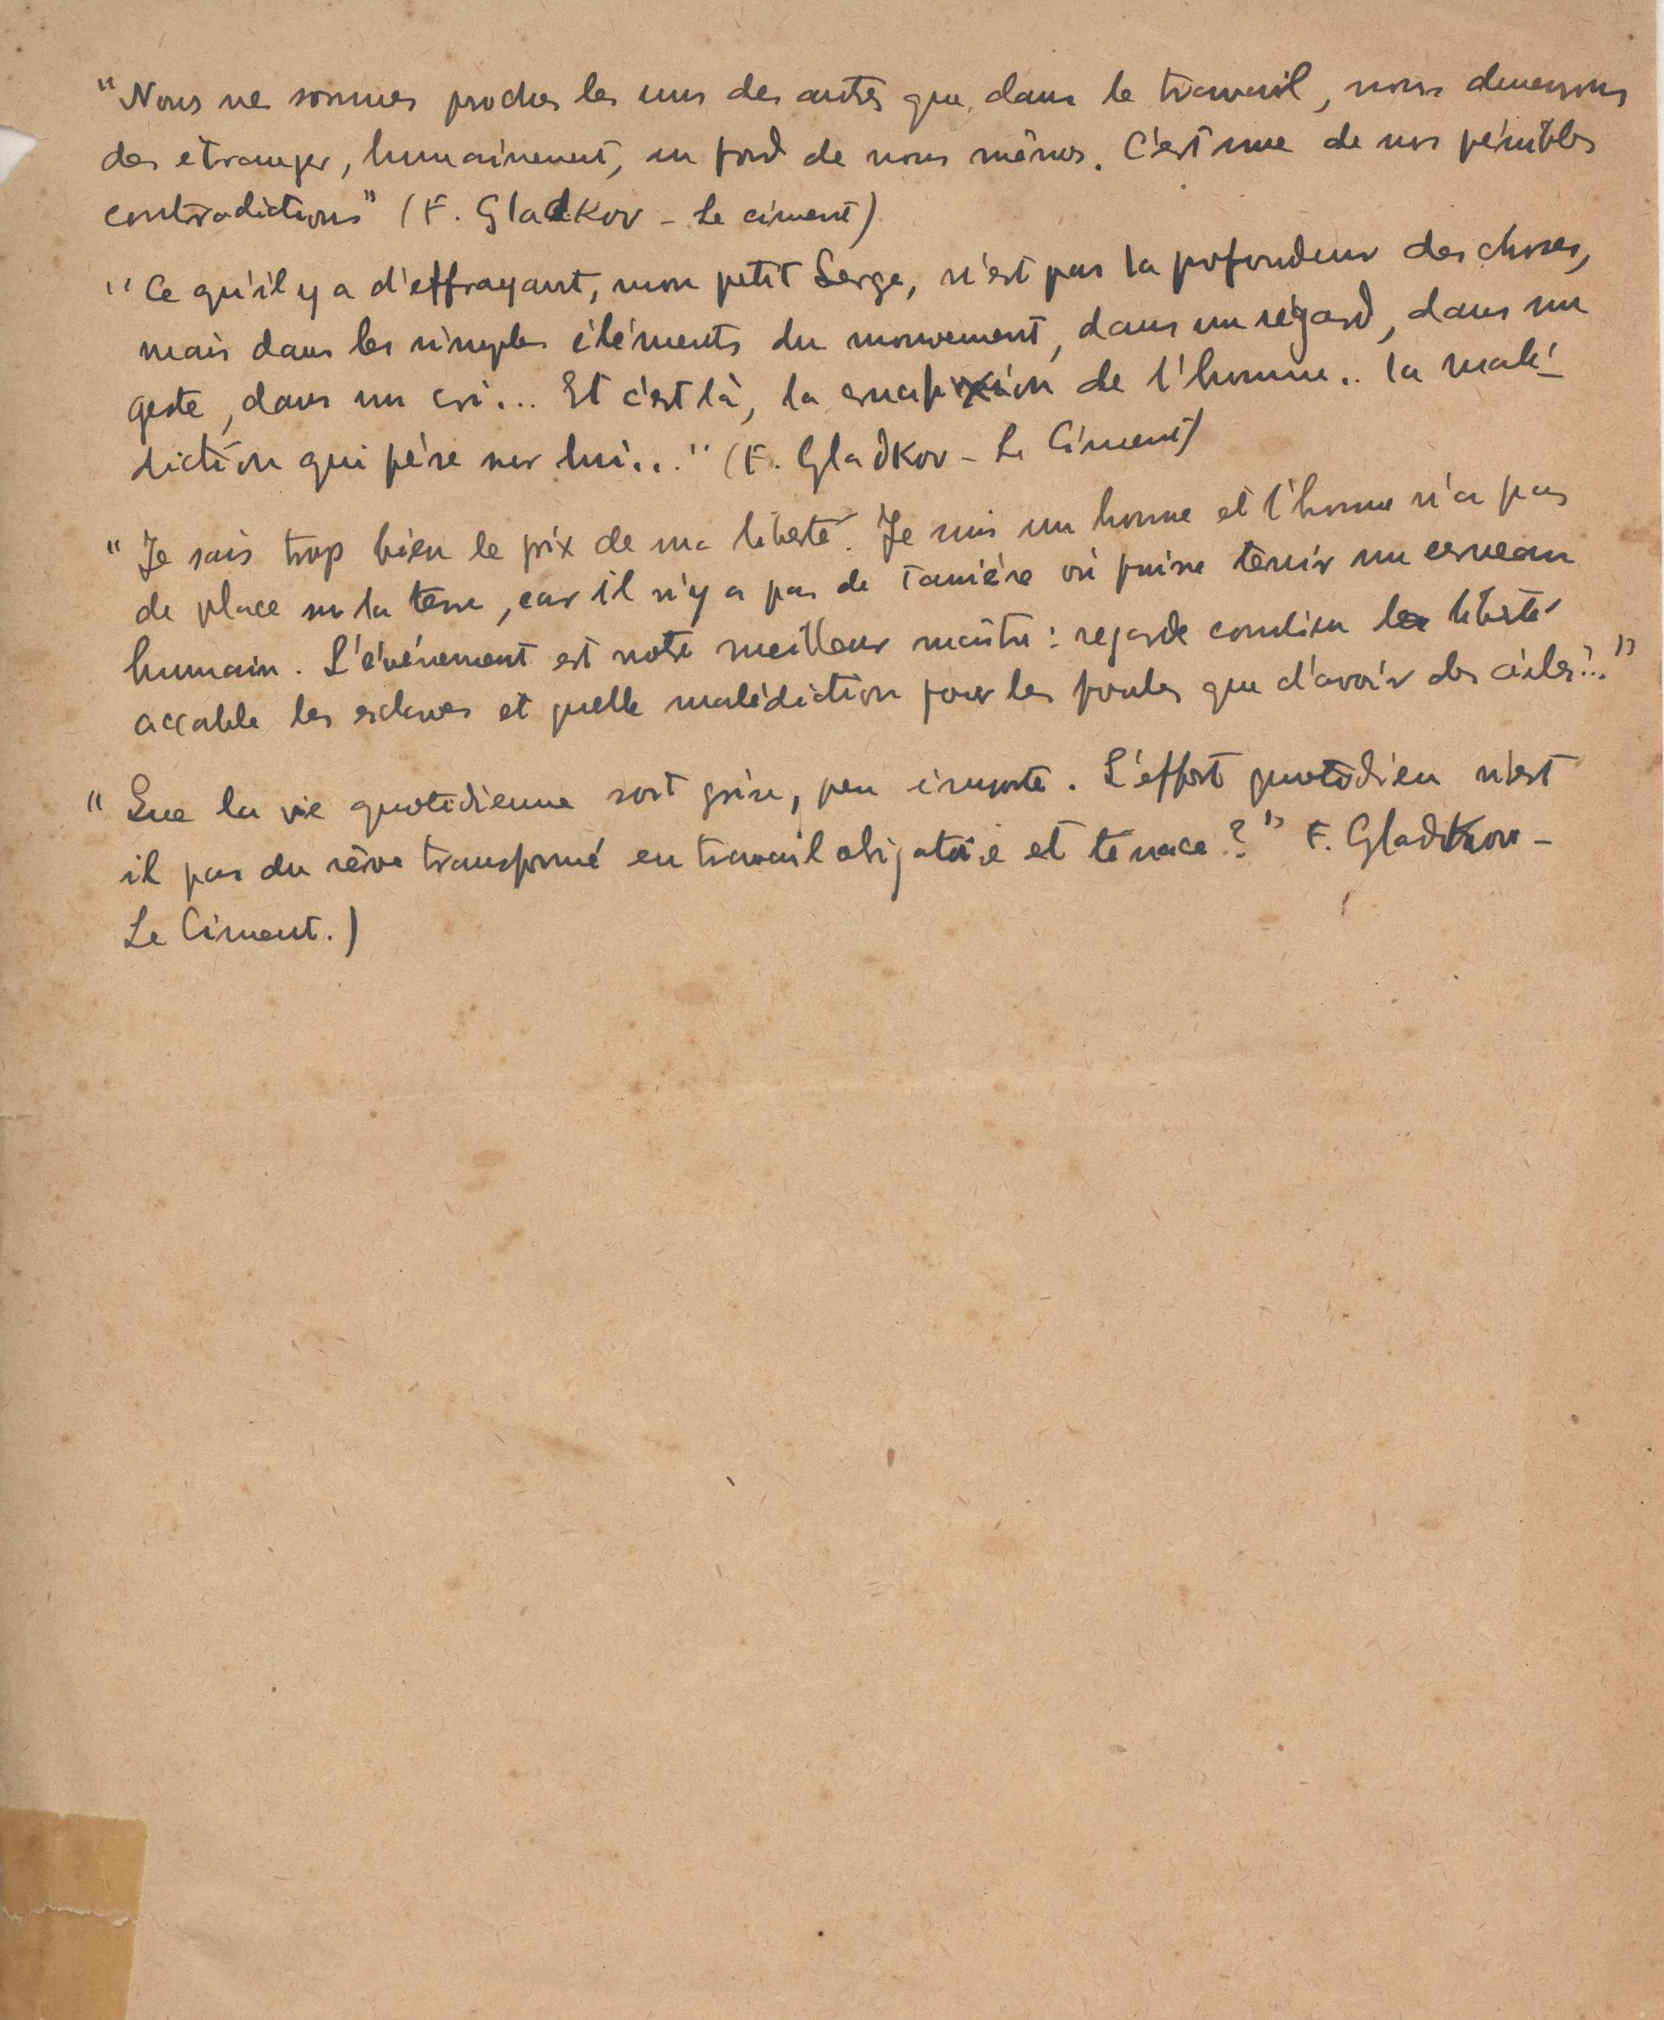 "Nous ne sommes proches les uns des autres que dans le travail, nous demeurons
des étranger, humainement, au fond de nous mêmes. C'est une de nos pénibles
contradictions" (F. Gladkov - Le ciment)
"Ce qu'il y a d'effrayant, mon petit Serge, n'est pas la profondeur des choses,
mais dans les simples éléments du mouvement, dans un regard, dans un
geste, dans un cri... Et c'est là, la crucifixion de l'homme.. la malé-
diction qui pèse sur lui..." (F. Gladkov - Le Ciment)
"Je sais trop bien le prix de ma liberté. Je suis un homme et l'homme n'a pas
de place sur la terre, car il n'y a pas de tanière où puisse tenir un cerveau
humain. L'événement est notre meilleur maître : regarde combien la liberté
accable les esclaves et quelle malédiction pour les poules que d'avoir des ailes!..."
"Que la vie quotidienne soit grise, peu importe. L'effort quotidien n'est
il pas du rêve transformé en travail obligatoire et tenace ?" F. Gladkov -
Le Ciment.)